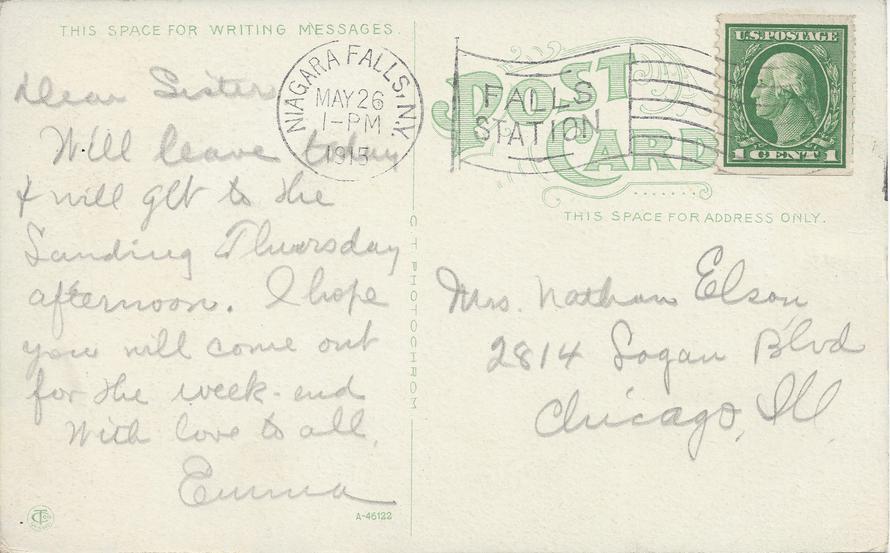 THIS SPACE FOR WRITING MESSAGES.
Dear Sister
Will leave today
& will get to the
Landing Thursday
afternoon. I hope
you will come out
for the week-end
With love to all,
Emma
A-46122
C T PHOTOCHROM
NIAGARA FALLS, N.Y.
MAY 26
1-PM
1915
FALLS
STATION
POST
CARD
U.S. POSTAGE
1 CENT 1
THIS SPACE FOR ADDRESS ONLY.
Mrs. Nathan Elson
2814 Logan Blvd
Chicago, Ill